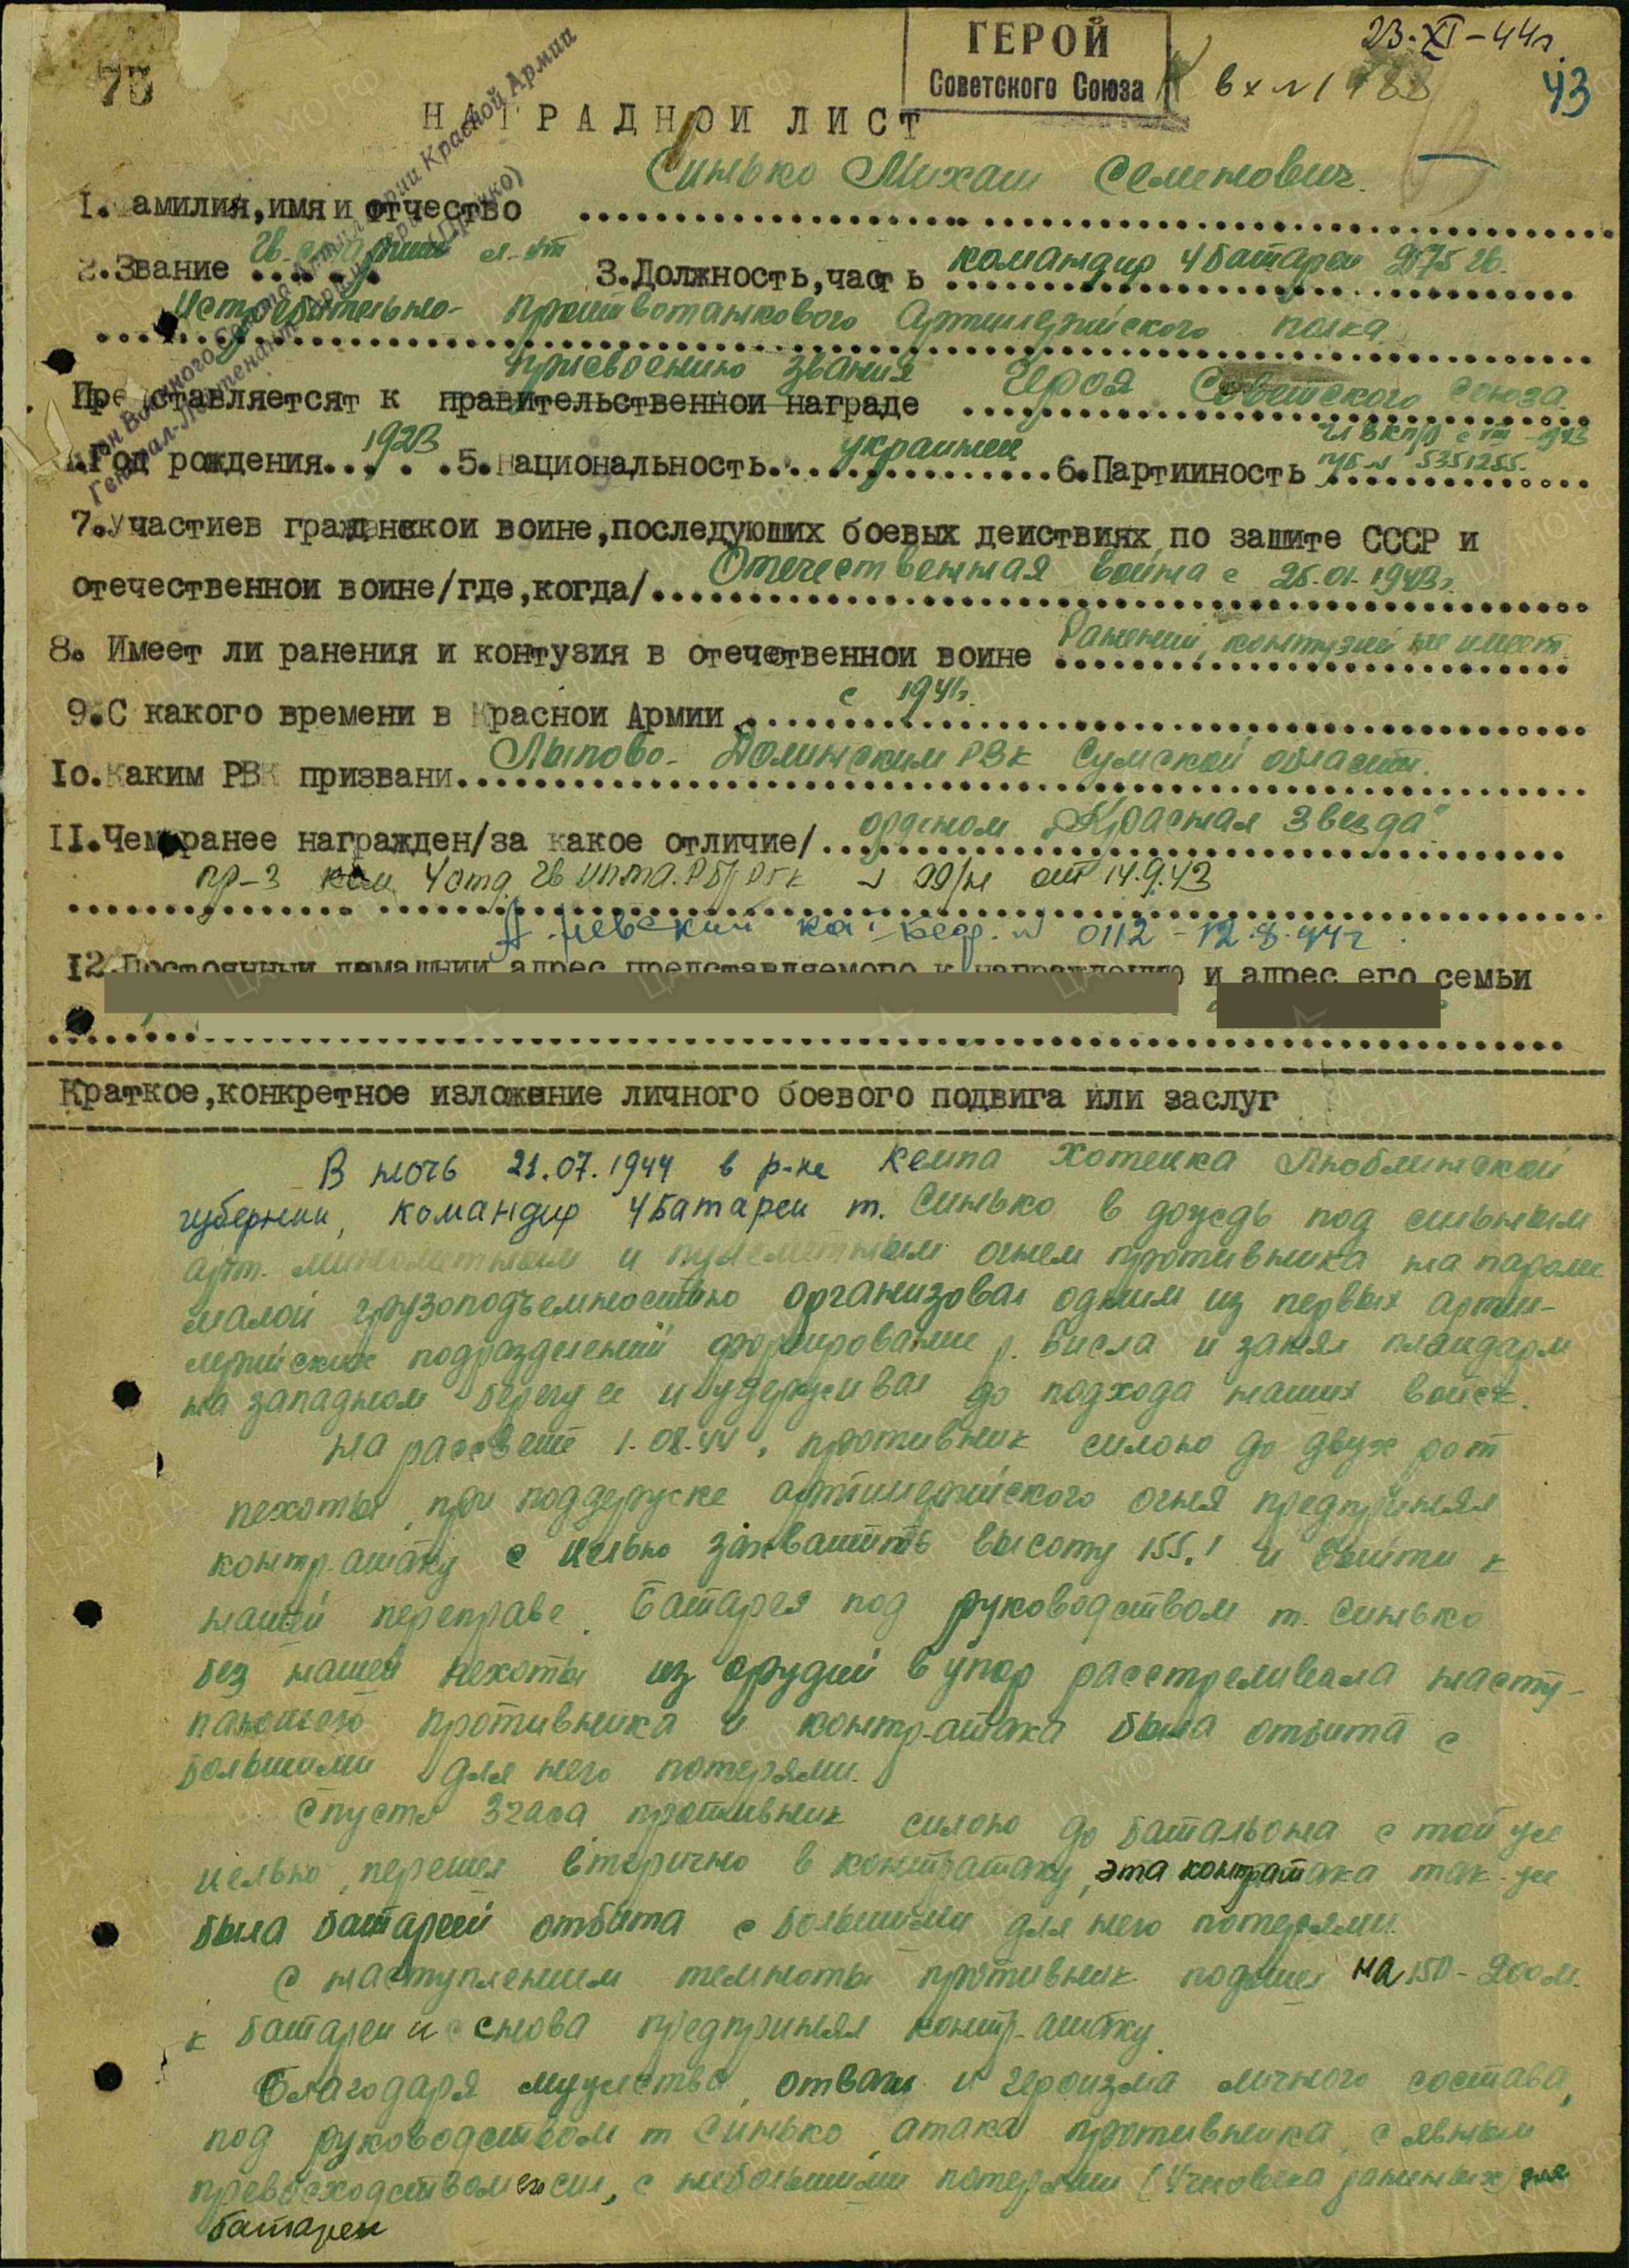 23-XI-44г.
ГЕРОЙ
Советского Союза
вх №1788
43
75
НАГРАДНОИ ЛИСТ
Синько Михаил Семенович.
1. Фамилия,имя и отчество
2.Звание Гв. старший л-нт 3.Должность,часть командир 4 батареи
Истребительно- Противотанкового Артиллерийского полка
присвоению звания Героя Советского Союза
Представляетсят к правительственнои награде
4.Год рождения 1923 5.Национальность украинец 6.Партииность
7.Участиев гражденскои воине,последующих боевых деиствиях по защите СССР и
отечественнои воине/где,когда/ Отечественная война с
8. Имеет ли ранения и контузия в отечественнои воине Ранений, контузий не имеет
9.С какого времени в Краснои Армии с 1941г.
10.Каким РВК призвани Лыпово- Долинским РВК Сумской области.
11.Чем ранее награжден/за какое отличие/ орденом "Красная Звезда"
от 14.9.43
0112 - 12.8.44г.
12.Постоянныи домашнии адрес представляемого к награждению и адрес его семьи
Краткое,конкретное изложение личного боевого подвига или заслуг
В ночь 21.07.1944 в р-не Кемпа Хотецка Люблинской
губернии, командир 4 батареи т. Синько в дождь под сильным
арт. минометным и пулеметным огнем противника на пароме
малой грузоподъемностью организовал одним из первых артил-
лерийских подразделений форсирование р. Висла и занял плацдарм
на западном берегу и удерживал до подхода наших войск.
На рассвете 1.08.44, противник силою до двух рот
пехоты, при поддержке артиллерийского огня предпринял
контр-атаку с целью захватить высоту 155.1 и выйти к
нашей переправе. Батарея под руководством т. Синько
без нашей пехоты из орудий в упор расстреливала насту-
пающего противника и контр-атака была отбита с
большими для него потерями.
Спустя 3 часа противник силою до батальона с той же
целью, перешел вторично в контратаку, эта контратака так-же
была батареей отбита с большими для него потерями.
С наступлением темноты противник подошел на 150-200м.
к батареи и снова предпринял контр-атаку.
Благодаря мужества, отваги и героизма личного состава,
под руководством т Синько, атака противника, с явным
превосходством его сил, с небольшими потерями (4 человека раненых) для
батареи